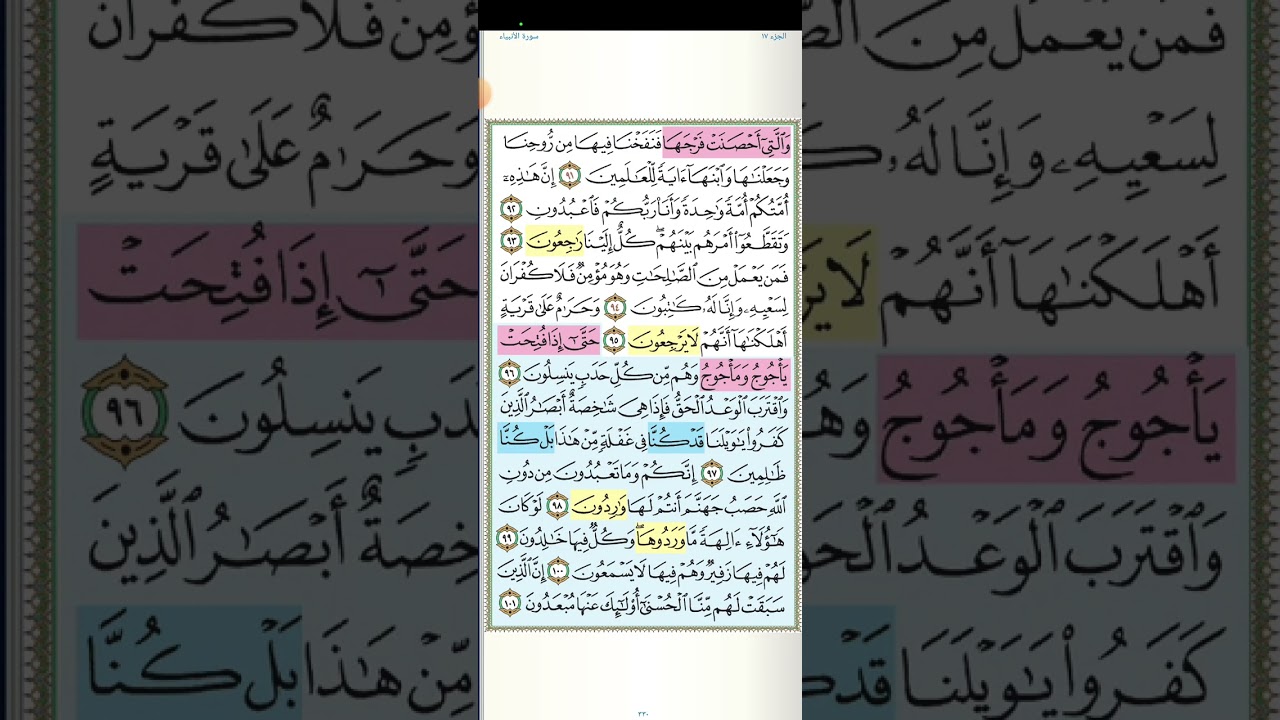 الجزء ١٧
سورة الأنبياء
وَٱلَّتِىٓ أَحۡصَنَتۡ فَرۡجَهَا فَنَفَخۡنَا فِيهَا مِن رُّوحِنَا
وَجَعَلۡنَٰهَا وَٱبۡنَهَآ ءَايَةٗ لِّلۡعَٰلَمِينَ ٩١ إِنَّ هَٰذِهِۦٓ
أُمَّتُكُمۡ أُمَّةٗ وَٰحِدَةٗ وَأَنَا۠ رَبُّكُمۡ فَٱعۡبُدُونِ ٩٢
وَتَقَطَّعُوٓاْ أَمۡرَهُم بَيۡنَهُمۡۖ كُلٌّ إِلَيۡنَا رَٰجِعُونَ ٩٣
فَمَن يَعۡمَلۡ مِنَ ٱلصَّٰلِحَٰتِ وَهُوَ مُؤۡمِنٞ فَلَا كُفۡرَانَ
لِسَعۡيِهِۦ وَإِنَّا لَهُۥ كَٰتِبُونَ ٩٤ وَحَرَٰمٌ عَلَىٰ قَرۡيَةٍ
أَهۡلَكۡنَٰهَآ أَنَّهُمۡ لَا يَرۡجِعُونَ ٩٥ حَتَّىٰٓ إِذَا فُتِحَتۡ
يَأۡجُوجُ وَمَأۡجُوجُ وَهُم مِّن كُلِّ حَدَبٖ يَنسِلُونَ ٩٦
وَٱقۡتَرَبَ ٱلۡوَعۡدُ ٱلۡحَقُّ فَإِذَا هِيَ شَٰخِصَةٌ أَبۡصَٰرُ ٱلَّذِينَ
كَفَرُواْ يَٰوَيۡلَنَا قَدۡ كُنَّا فِي غَفۡلَةٖ مِّنۡ هَٰذَا بَلۡ كُنَّا
ظَٰلِمِينَ ٩٧ إِنَّكُمۡ وَمَا تَعۡبُدُونَ مِن دُونِ
ٱللَّهِ حَصَبُ جَهَنَّمَ أَنتُمۡ لَهَا وَٰرِدُونَ ٩٨ لَوۡ كَانَ
هَٰٓؤُلَآءِ ءَالِهَةٗ مَّا وَرَدُوهَاۖ وَكُلّٞ فِيهَا خَٰلِدُونَ ٩٩
لَهُمۡ فِيهَا زَفِيرٞ وَهُمۡ فِيهَا لَا يَسۡمَعُونَ ١٠٠ إِنَّ ٱلَّذِينَ
سَبَقَتۡ لَهُم مِّنَّا ٱلۡحُسۡنَىٰٓ أُوْلَٰٓئِكَ عَنۡهَا مُبۡعَدُونَ ١٠١
٣٣٠